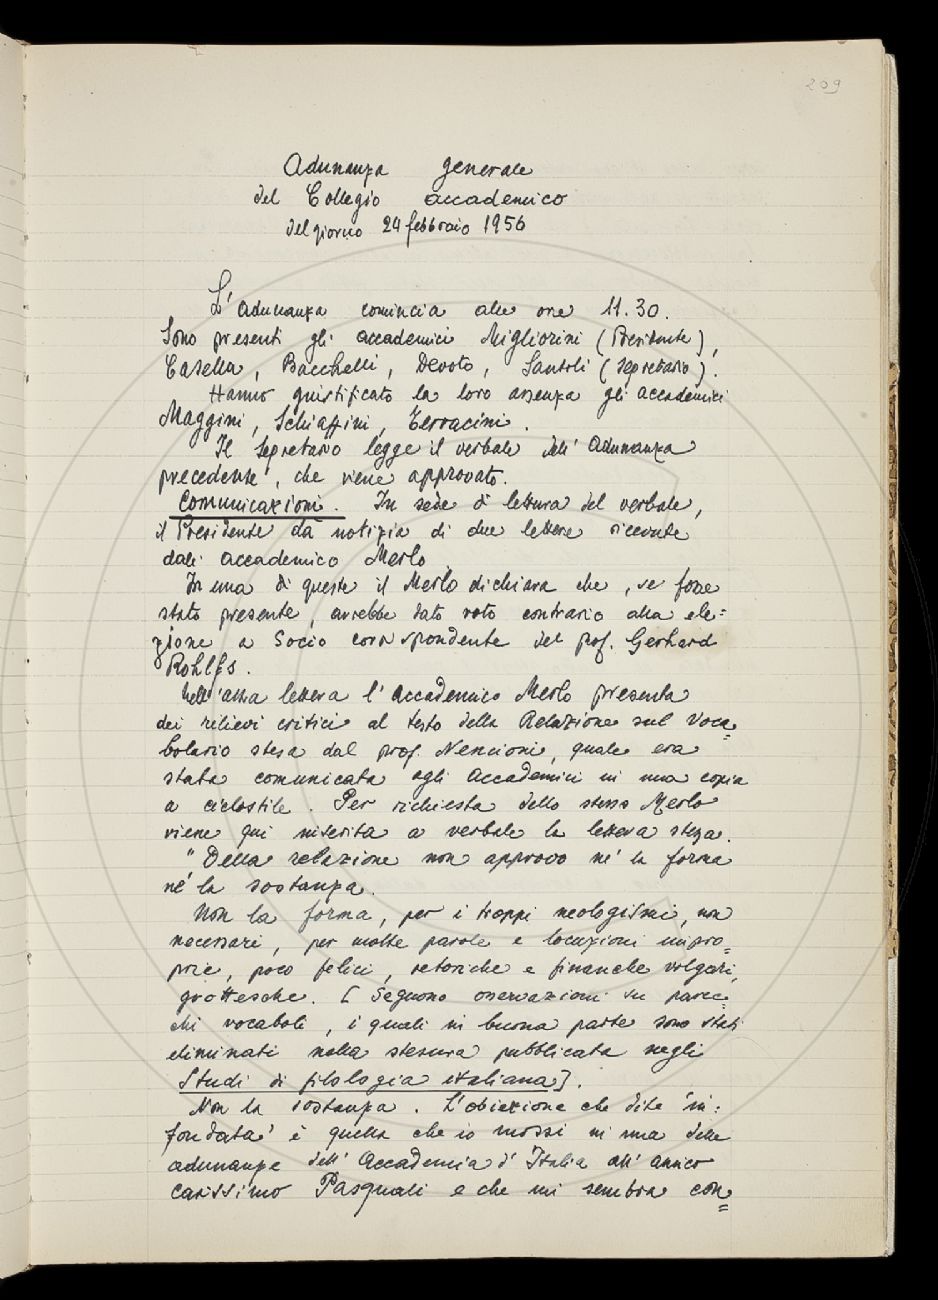 209
Adunanza generale
del Collegio accademico
del giorno 24 febbraio 1956
L'adunanza comincia alle ore 11.30.
Sono presenti gli accademici Migliorini (Presidente),
Casella, Bacchelli, Devoto, Santoli (segretario).
Hanno giustificato la loro assenza gli accademici
Maggini, Schiaffini, Terracini.
Il segretario legge il verbale dell'adunanza
precedente, che viene approvato.
Comunicazioni. In sede di lettura del verbale,
il Presidente dà notizia di due lettere ricevute
dall'accademico Merlo.
In una di queste il Merlo dichiara che, se fosse
stato presente, avrebbe dato voto contrario alla ele=
zione a Socio corrispondente del prof. Gerhard
Rohlfs.
Nell'altra lettera l'Accademico Merlo presenta
dei rilievi critici al testo della Relazione sul Voca=
bolario stesa dal prof. Nencioni, quale era
stata comunicata agli Accademici in una copia
a ciclostile. Per richiesta dello stesso Merlo
viene qui inserita a verbale la lettera stessa.
"Della relazione non approvo né la forma
né la sostanza.
Non la forma, per i troppi neologismi, non
necessari, per molte parole e locuzioni impro=
prie, poco felici, retoriche e finanche volgari,
grottesche. [Seguono osservazioni su parec=
chi vocaboli, i quali in buona parte sono stati
eliminati nella stesura pubblicata negli
Studi di filologia italiana].
Non la sostanza. L'obiezione che dite 'in=
fondata' è quella che io mossi in una delle
adunanze dell'Accademia d'Italia all'amico
carissimo Pasquali e che mi sembra con=